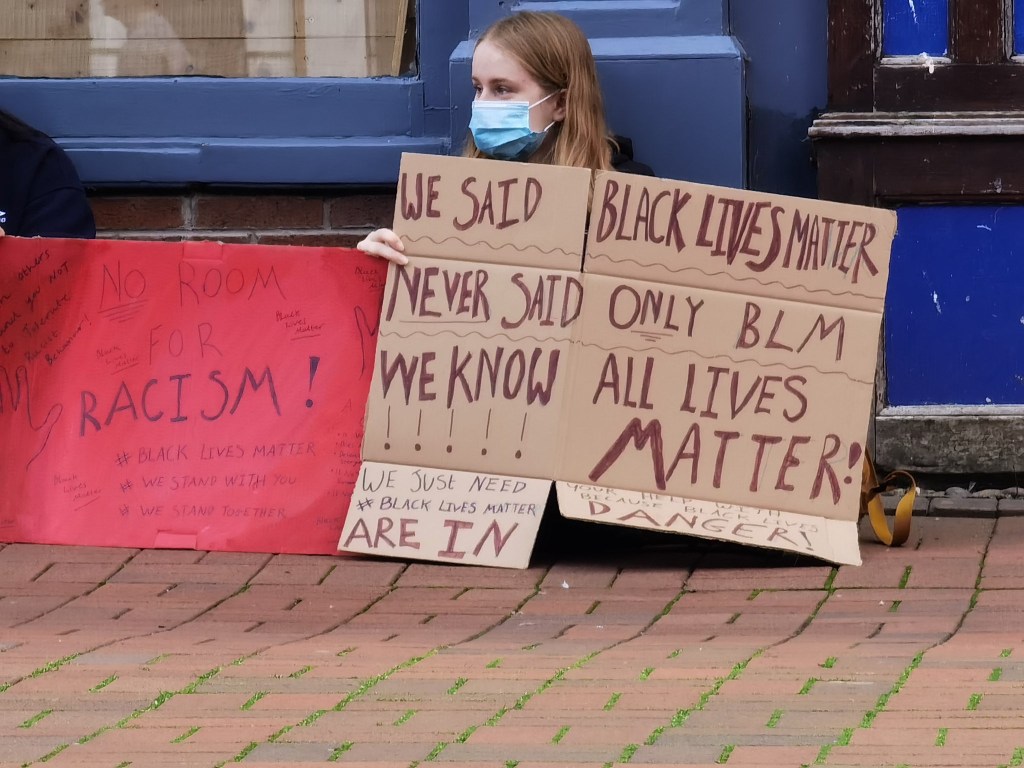 others
and do NOT
to tolerate
Racist
Behaviour!
NO ROOM
FOR
RACISM!
Black
Lives
Matter
Black
Lives Matter
Black
Lives
Matter
# BLACK LIVES MATTER
# WE STAND WITH YOU
# WE STAND TOGETHER
WE SAID BLACK LIVES MATTER
NEVER SAID ONLY BLM
WE KNOW ALL LIVES
!!!!! MATTER!
WE JUST NEED YOUR HELP WITH
# BLACK LIVES MATTER BECAUSE BLACK LIVES
ARE IN DANGER!